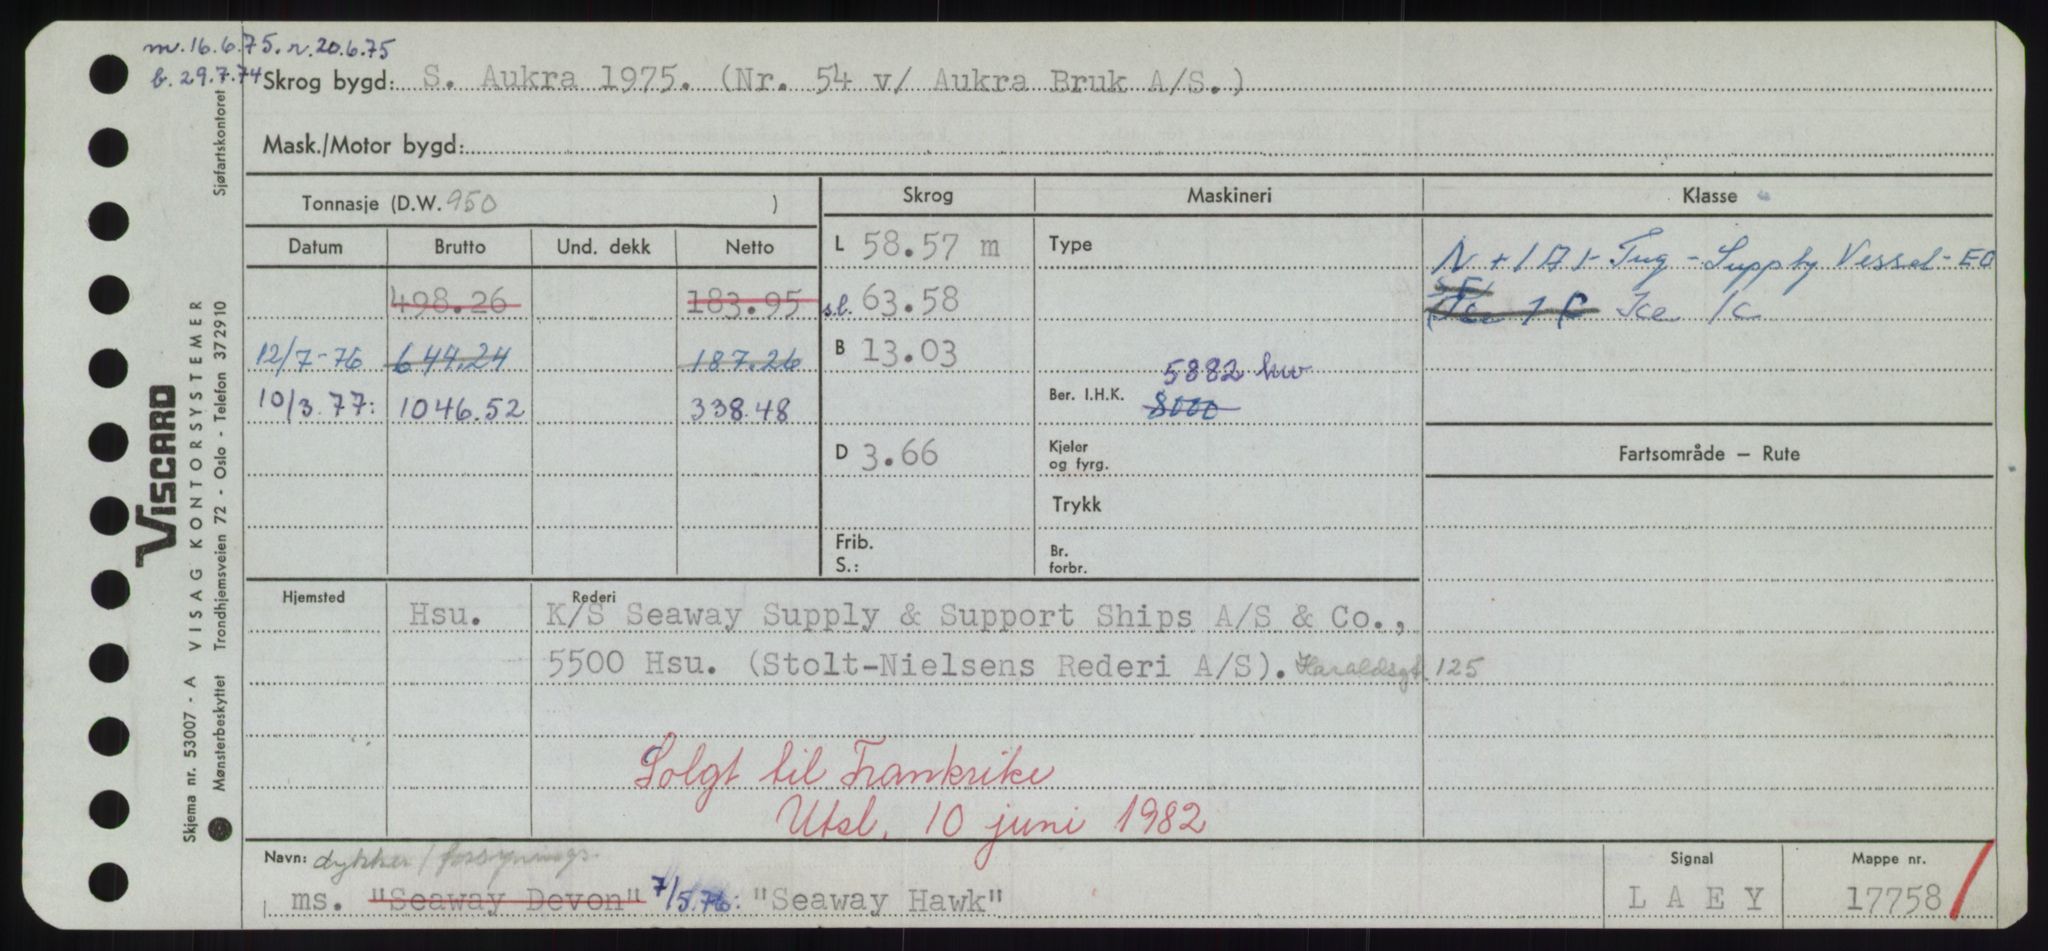 m. 16.6.75. r. 20.6.75
b. 29.7.74 Skrog bygd: S. Aukra 1975. (Nr. 54 v/ Aukra Bruk A/S.)
Mask./Motor bygd:
Tonnasje (D.W. 950 ) Skrog Maskineri Klasse
Datum Brutto Und. dekk Netto L 58.57 m Type N + 1A1- Tug - Supply Vessel - EO
498.26 183.95 s.l. 63.58 Ice 1C Ice 1C
12/7-76 644.24 187.26 B 13.03
5882 kw
10/3.77: 1046.52 338.48 Ber. I.H.K. 8000
D 3.66 Kjeler og fyrg. Fartsområde – Rute
Trykk
Frib. S.: Br. forbr.
Hjemsted Hsu. Rederi K/S Seaway Supply & Support Ships A/S & Co.,
5500 Hsu. (Stolt-Nielsens Rederi A/S). Haraldsgt. 125
Solgt til Frankrike
Utsl. 10 juni 1982
Navn: dykker/forsynings. Signal Mappe nr.
ms. "Seaway Devon" 7/5.76: "Seaway Hawk" LAEY 17758
VISCARD
Skjema nr. 53007 - A VISAG KONTORSYSTEMER
Mønsterbeskyttet Trondhjemsveien 72 - Oslo - Telefon 372910 Sjøfartskontoret